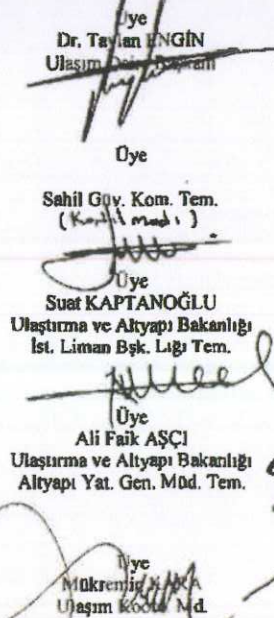 Üye
Dr. Taylan ENGİN
Ulaşım
Üye
Sahil Güv. Kom. Tem.
(Katılmadı)
Üye
Suat KAPTANOĞLU
Ulaştırma ve Altyapı Bakanlığı
İst. Liman Bşk. Lığı Tem.
Üye
Ali Faik AŞÇI
Ulaştırma ve Altyapı Bakanlığı
Altyapı Yat. Gen. Müd. Tem.
Üye
Mükremin
Ulaşım Md.